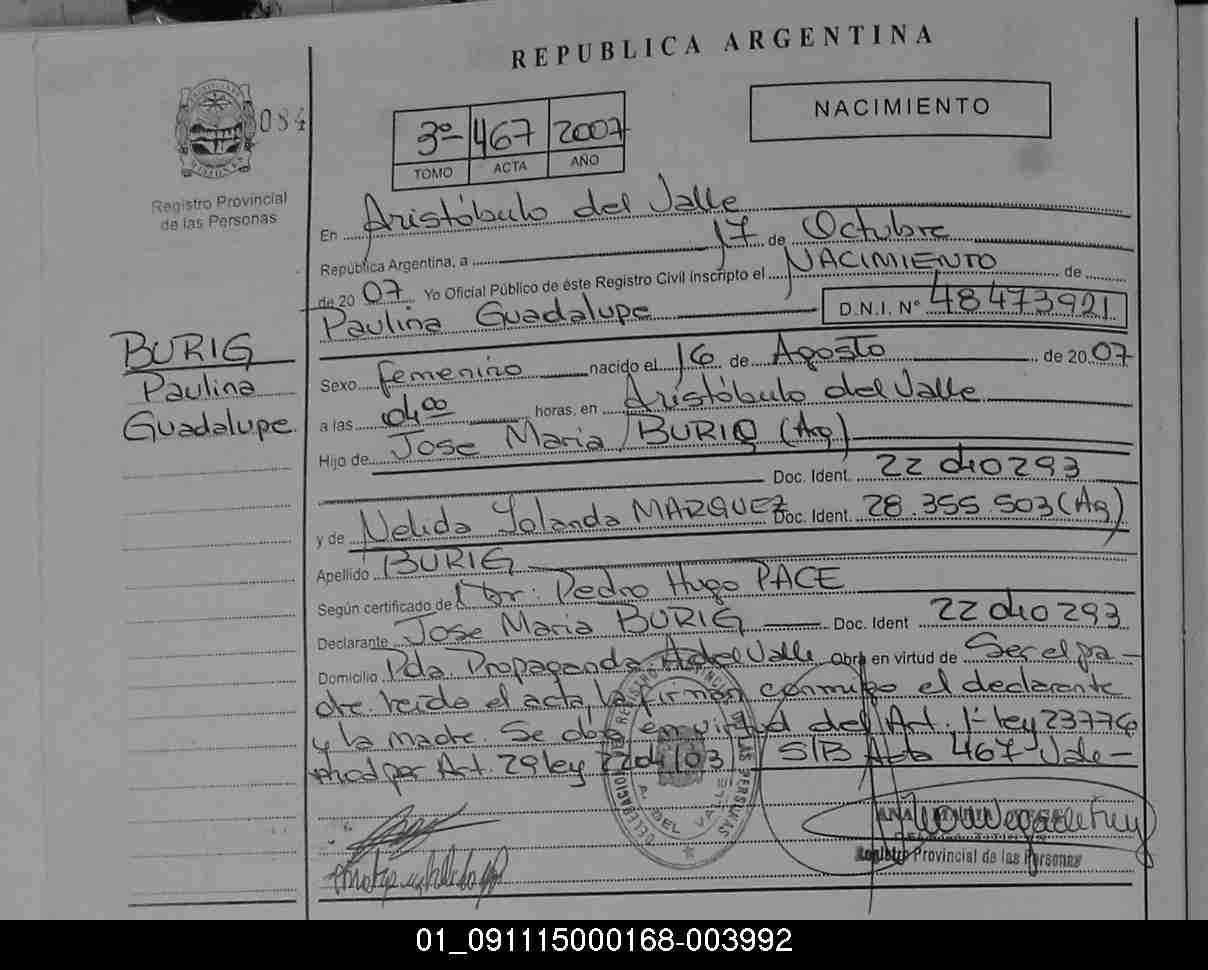 REPUBLICA ARGENTINA
084
Registro Provincial
de las Personas
NACIMIENTO
3º 467 2007
TOMO ACTA AÑO
En Aristóbulo del Valle
República Argentina, a 17 de Octubre
de 20 07 Yo Oficial Público de éste Registro Civil inscripto el NACIMIENTO de
Paulina Guadalupe D.N.I. Nº 48473921
BURIG
Paulina
Guadalupe
Sexo femenino nacido el 16 de Agosto de 20 07
a las 04:00 horas, en Aristóbulo del Valle
Hijo de Jose Maria BURIG (Ag)
Doc. Ident. 22 410 293
y de Nelida Yolanda MARQUEZ Doc. Ident. 28.355.503 (Ag)
Apellido BURIG
Según certificado de Dr: Pedro Hugo PACE
Declarante Jose Maria BURIG Doc. Ident 22 410 293
Domicilio Pda. Propaganda. A del Valle Obra en virtud de Ser el pa-
dre. Leida el acta, la firman conmigo el declarante
y la madre. Se obra en virtud del Art. 1º ley 23776
por Art. 29 ley S/B Acta 467 Vale-
DELEGACION REGISTRO PROVINCIAL DE LAS PERSONAS
A. DEL VALLE
Registro Provincial de las Personas
01_091115000168-003992